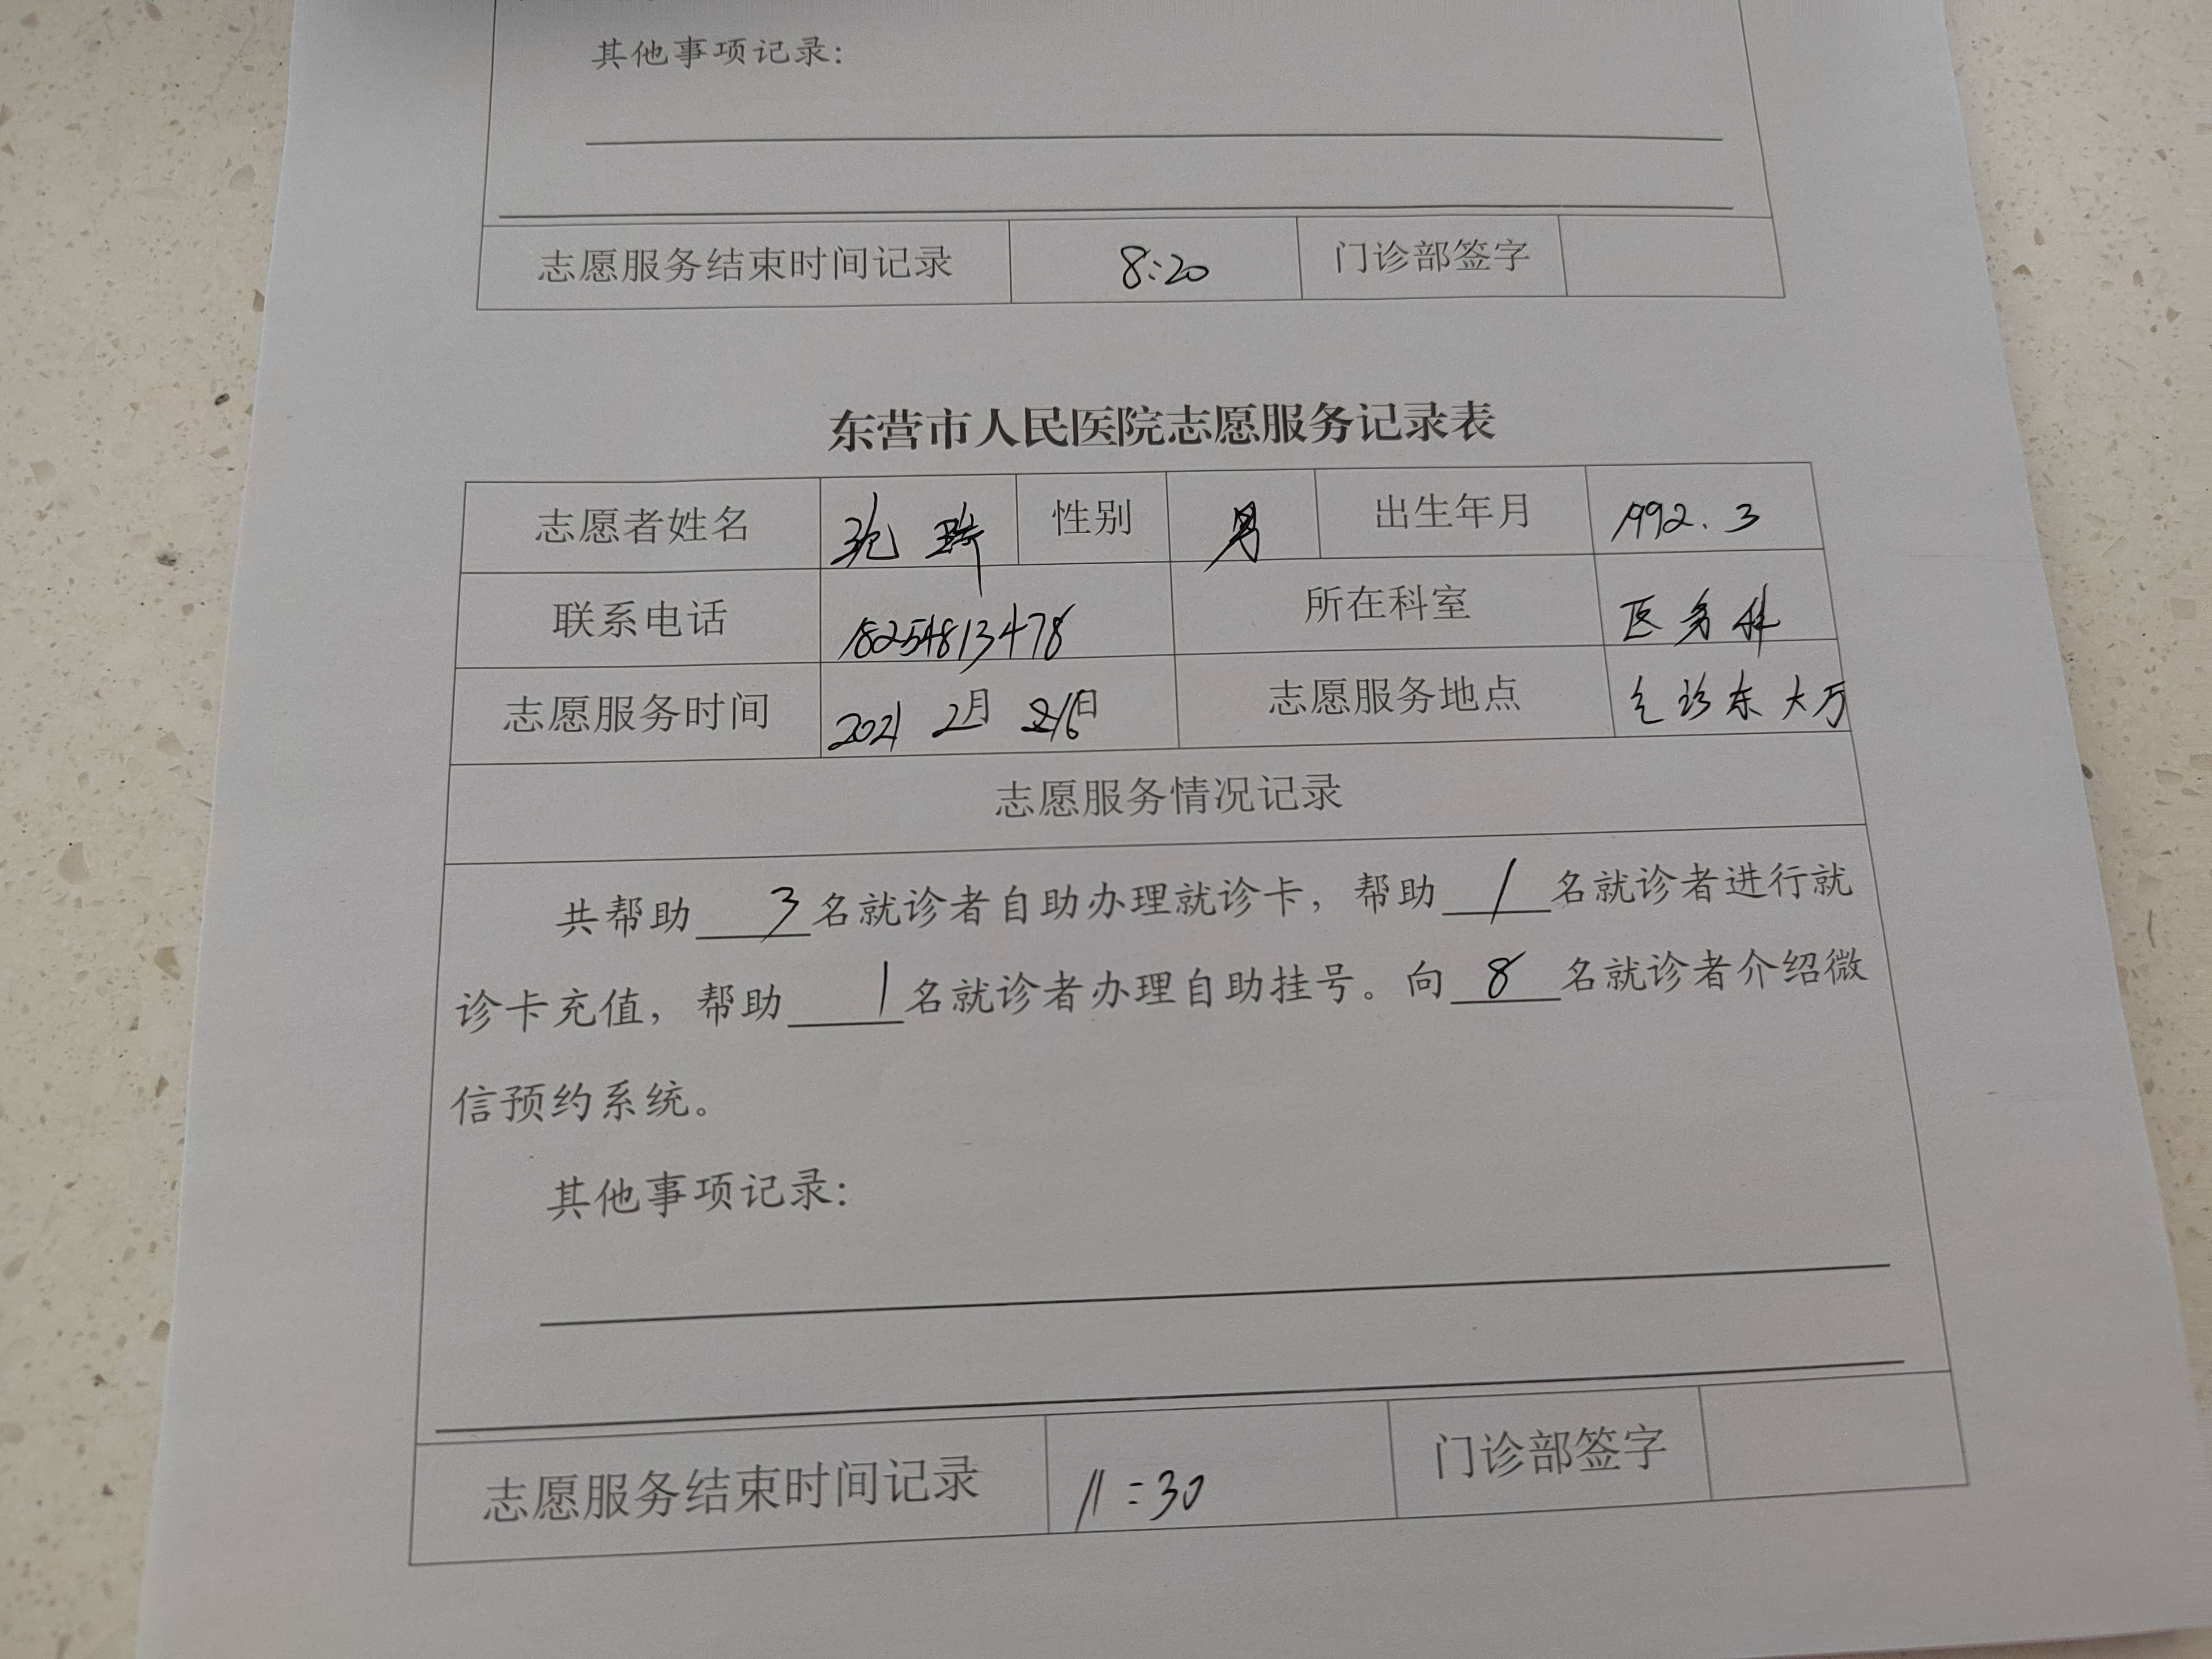 其他事项记录：
志愿服务结束时间记录 8:20 门诊部签字
东营市人民医院志愿服务记录表
志愿者姓名 性别 男 出生年月 1992.3
联系电话 18254813478 所在科室 医务科
志愿服务时间 2021 2月 日 志愿服务地点 门诊东大厅
志愿服务情况记录
共帮助 3 名就诊者自助办理就诊卡，帮助 1 名就诊者进行就
诊卡充值，帮助 1 名就诊者办理自助挂号。向 8 名就诊者介绍微
信预约系统。
其他事项记录：
志愿服务结束时间记录 11:30 门诊部签字